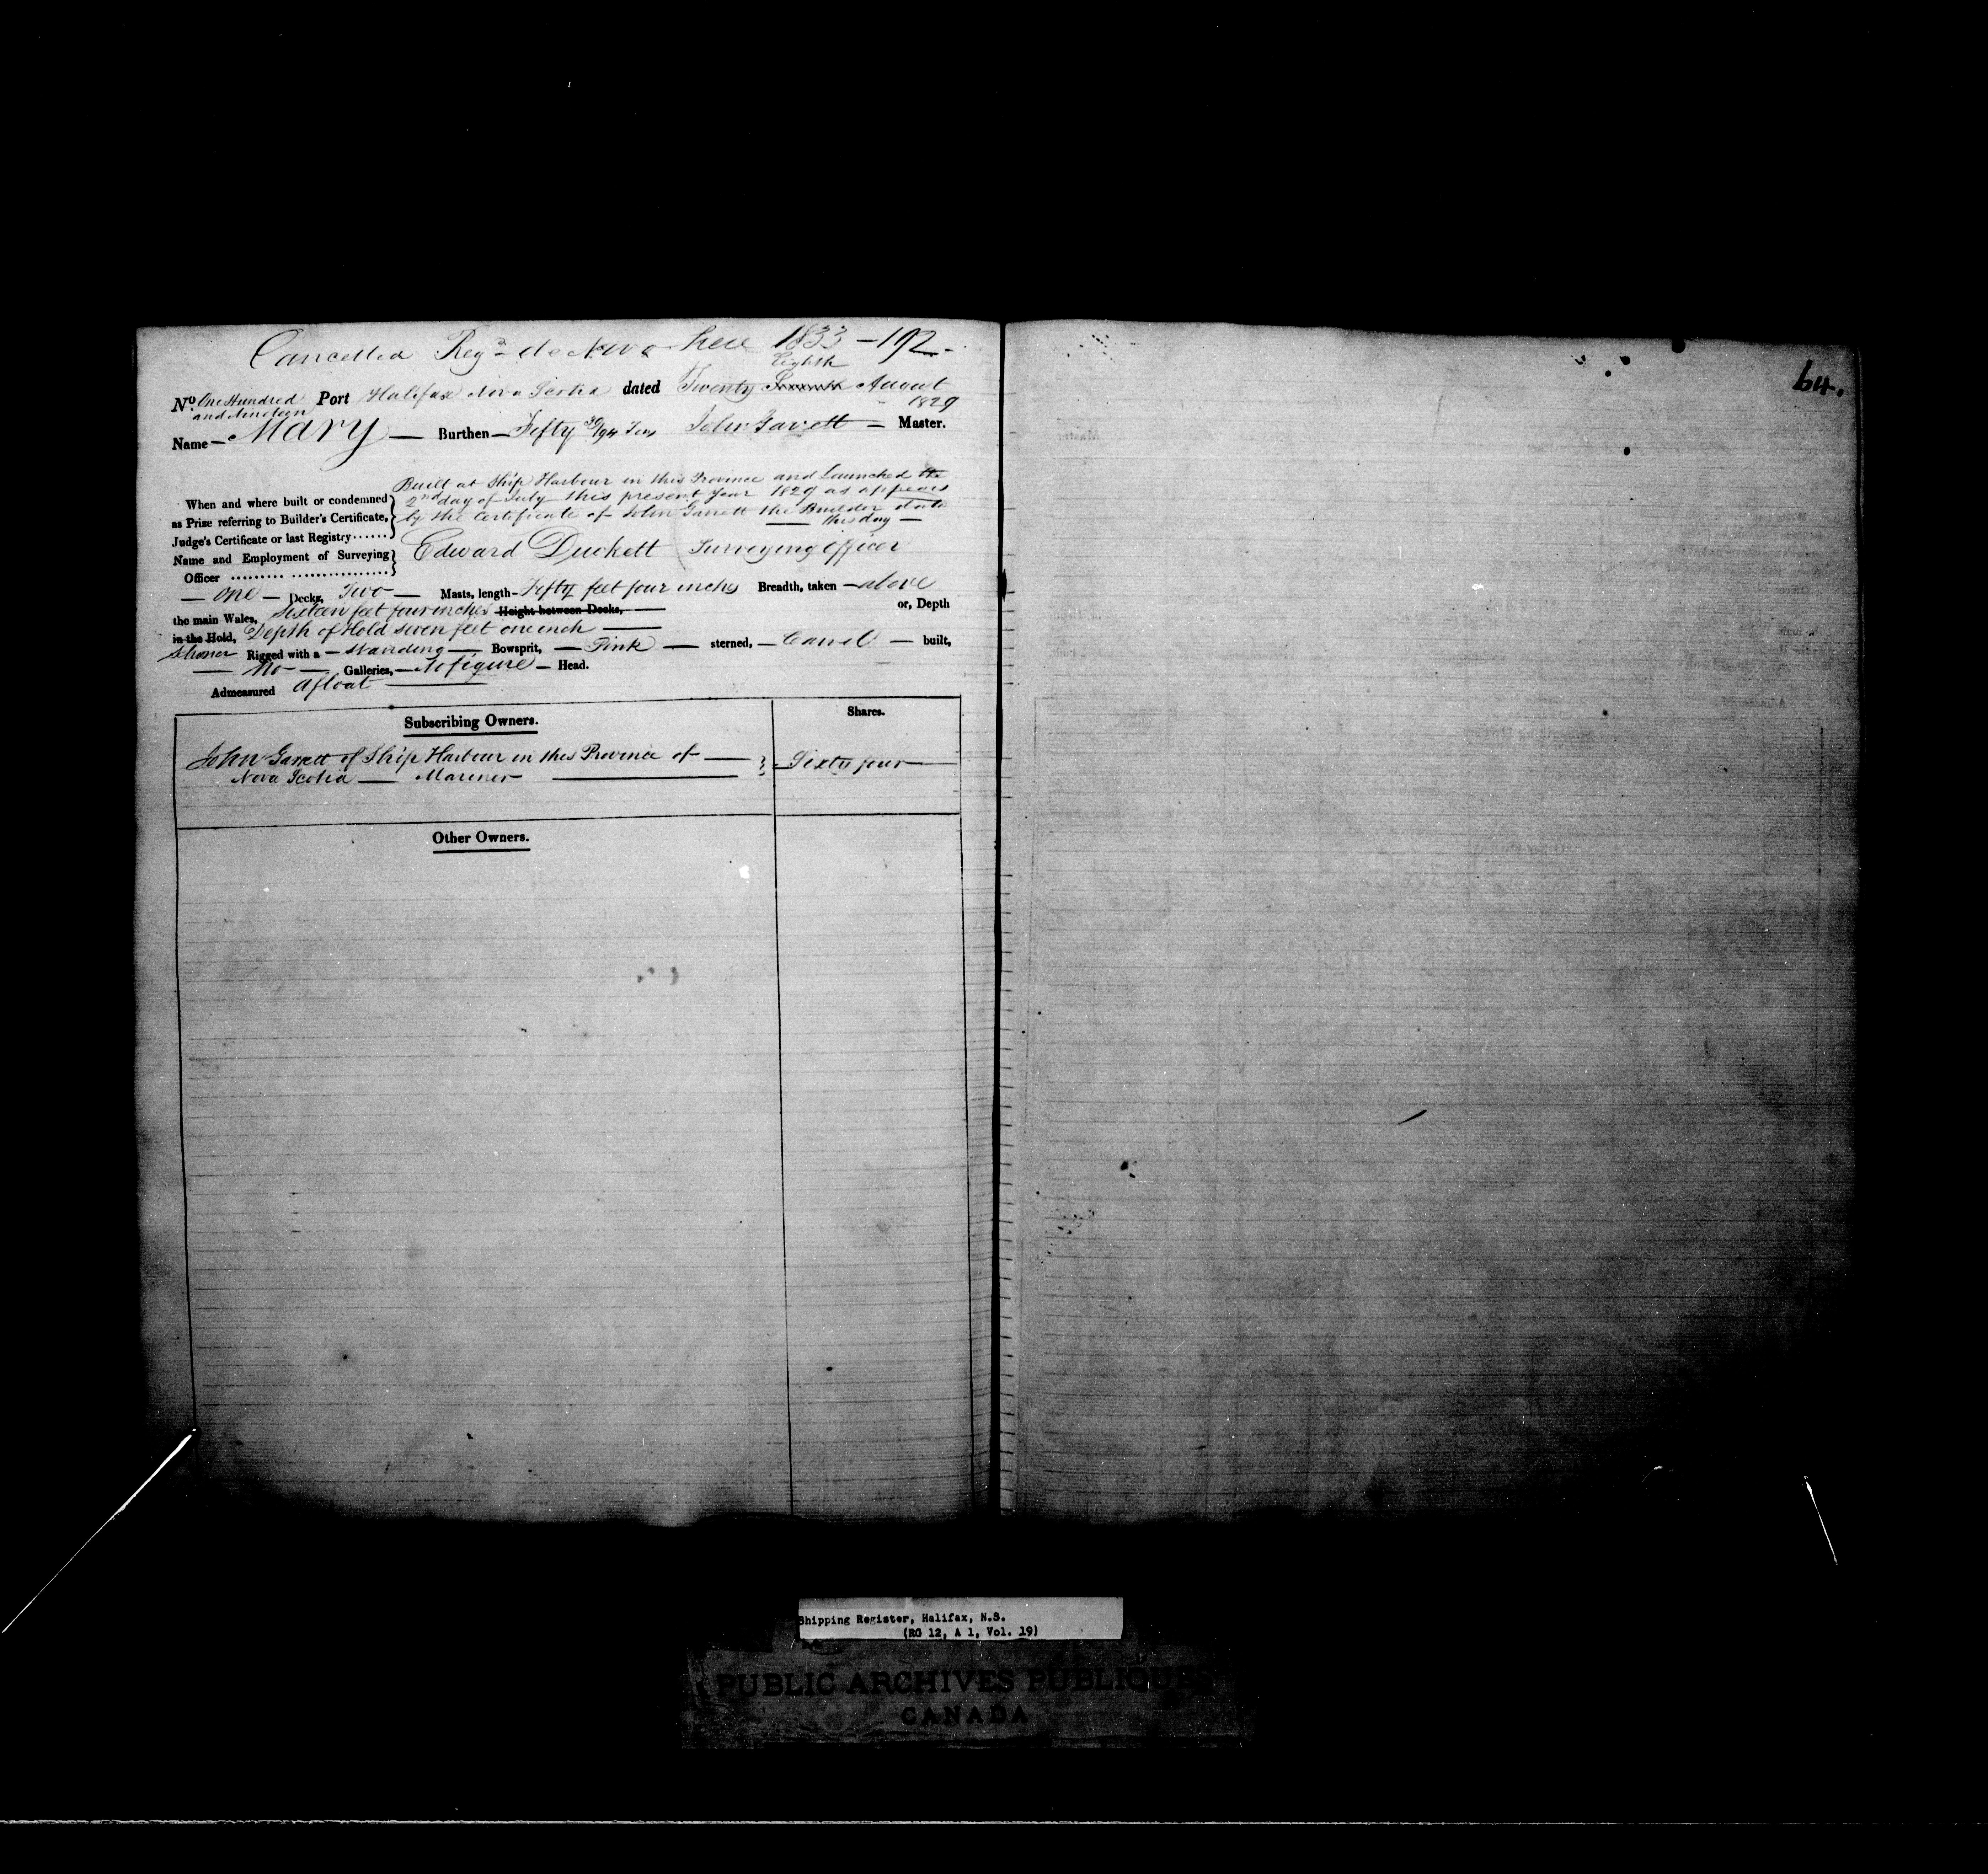 Cancelled Regd de Novo here 1833 - 192.
Eighth
No. One Hundred and Nineteen Port Halifax Nova Scotia dated Twenty August 1829
Name - Mary - Burthen - Fifty 30/94 Tons John Garrett - Master.
Built at Ship Harbour in this Province and Launched the
When and where built or condemned 2nd day of July this present Year 1829 as appears
as Prize referring to Builder's Certificate, by the Certificate of John Garrett the Builder date
Judge's Certificate or last Registry...... this day
Name and Employment of Surveying Edward Duckett Surveying officer
Officer
- One - Decks, Two - Masts, length - Fifty feet four inches Breadth, taken - above
the main Wales, Sixteen feet four inches Height between Decks, or, Depth
in the Hold, Depth of Hold seven feet one inch
Schoner Rigged with a - standing - Bowsprit, - Pink - sterned, - Carvel - built,
- No - Galleries, - No figure - Head.
Admeasured Afloat
Subscribing Owners. Shares.
John Garrett of Ship Harbour in this Province of Sixty four
Nova Scotia - Mariner
Other Owners.
64.
Shipping Register, Halifax, N.S.
(RG 12, A 1, Vol. 19)
PUBLIC ARCHIVES PUBLIQUES
CANADA